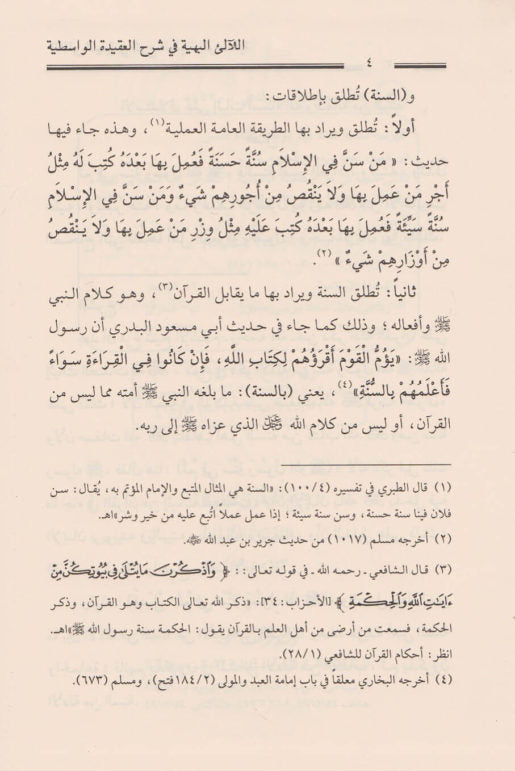 اللآلئ البهية في شرح العقيدة الواسطية
٤
و(السنة) تُطلق بإطلاقات:
أولاً: تُطلق ويراد بها الطريقة العامة العملية(١)، وهذه جاء فيها
حديث: « مَنْ سَنَّ فِي الإِسْلَامِ سُنَّةً حَسَنَةً فَعُمِلَ بِهَا بَعْدَهُ كُتِبَ لَهُ مِثْلُ
أَجْرِ مَنْ عَمِلَ بِهَا وَلَا يَنْقُصُ مِنْ أُجُورِهِمْ شَيءٌ وَمَنْ سَنَّ فِي الإِسْلَامِ
سُنَّةً سَيِّئَةً فَعُمِلَ بِهَا بَعْدَهُ كُتِبَ عَلَيْهِ مِثْلُ وِزْرِ مَنْ عَمِلَ بِهَا وَلَا يَنْقُصُ
مِنْ أَوْزَارِهِمْ شَيءٌ »(٢).
ثانياً: تُطلق السنة ويراد بها ما يقابل القرآن(٣)، وهو كلام النبي
ﷺ وأفعاله؛ وذلك كما جاء في حديث أبي مسعود البدري أن رسول
الله ﷺ: «يَؤُمُّ القَوْمَ أَقْرَؤُهُمْ لِكِتَابِ اللَّهِ، فَإِنْ كَانُوا فِي القِرَاءَةِ سَوَاءً
فَأَعْلَمُهُمْ بِالسُّنَّةِ»(٤)، يعني (بالسنة): ما بلغه النبي ﷺ أمته مما ليس من
القرآن، أو ليس من كلام الله ﷻ الذي عزاه ﷺ إلى ربه.
(١) قال الطبري في تفسيره (١٠٠/٤): «السنة هي المثال المتبع والإمام المؤتم به، يُقال: سن
فلان فينا سنة حسنة، وسن سنة سيئة؛ إذا عمل عملاً اتُبع عليه من خير وشر»اهـ.
(٢) أخرجه مسلم (١٠١٧) من حديث جرير بن عبد الله
(٣) قال الشافعي ـ رحمه الله ـ في قوله تعالى: ﴿ وَاذْكُرْنَ مَا يُتْلَىٰ فِي بُيُوتِكُنَّ مِنْ
ءَايَـٰتِ اللَّهِ وَالْحِكْمَةِ ﴾ [الأحزاب: ٣٤]: «ذكر الله تعالى الكتاب وهو القرآن، وذكر
الحكمة، فسمعت من أرضى من أهل العلم بالقرآن يقول: الحكمة سنة رسول الله ﷺ»اهـ.
انظر: أحكام القرآن للشافعي (٢٨/١).
(٤) أخرجه البخاري معلقاً في باب إمامة العبد والمولى (١٨٤/٢فتح)، ومسلم (٦٧٣).